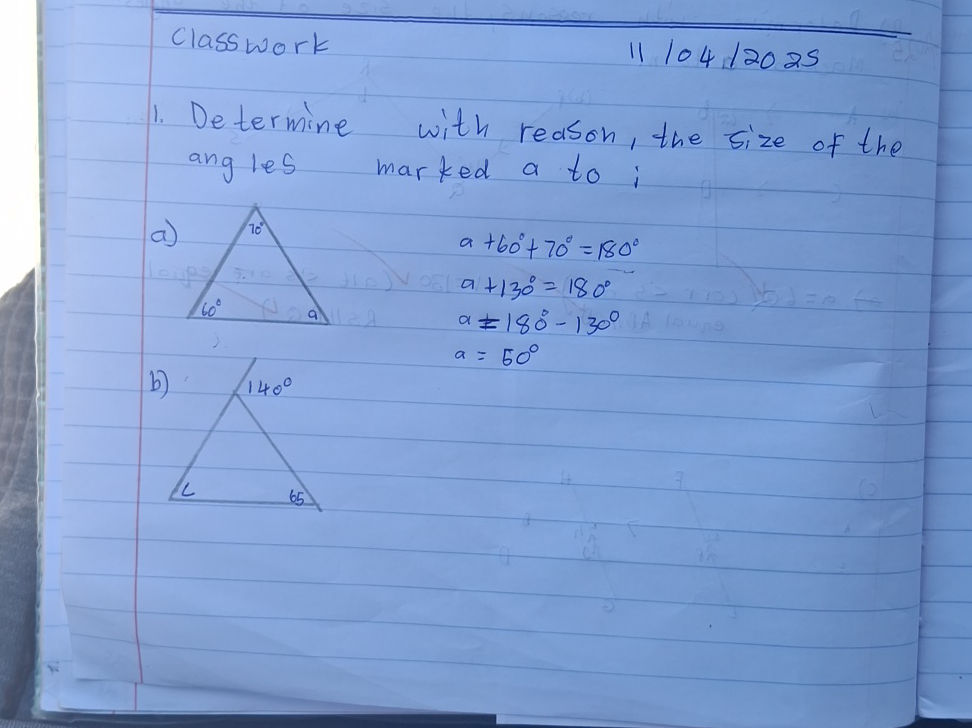 Classwork 11/04/2025
1. Determine with reason, the size of the
angles marked a to i
a) 70° a + 60° + 70° = 180°
a + 130° = 180°
60° a a = 180° - 130°
a = 50°
b) 140°
c 65